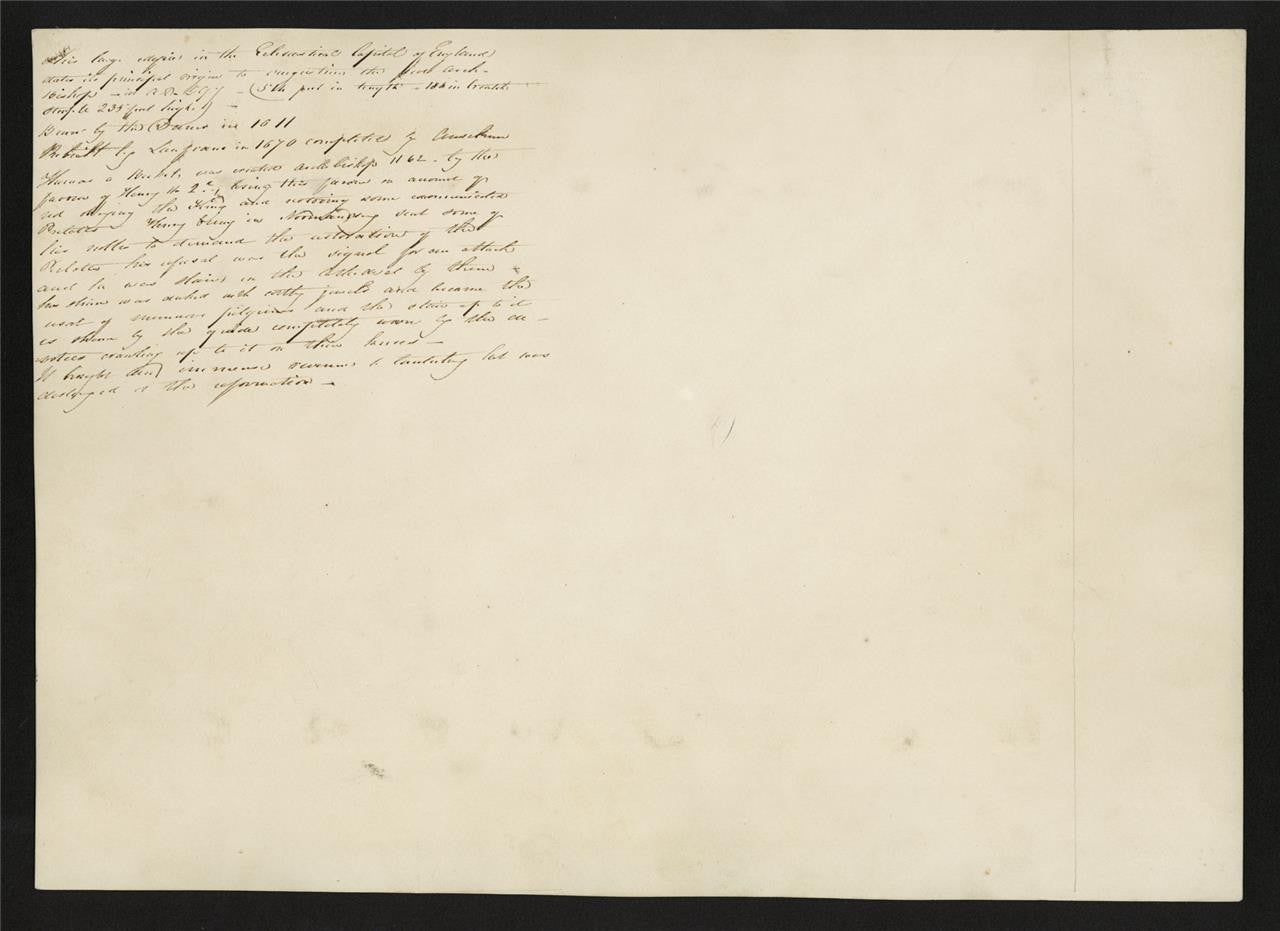 This large edifice in the Eclesiastical Capital of England
dates its principal origin to augustine the first Arch-
bishop - in A.D. 597 - (514 feet in length - 154 in breadth
steeple 235 feet high) -
Burnt by the Danes in 1011
Rebuilt by Lanfranc in 1070 completed by Anselm
Thomas a Becket was created archbishop 1162 - by the
favor of Henry the 2d, losing this favor on account of
not obeying the King and exiling some excommunicated
Prelates Henry being in Normandy sent some of
his nobles to demand the restoration of the
Prelates his refusal was the signal for an attack
and he was slain in the Cathedral by them -
his shrine was decked with costly jewels and became the
resort of numerous pilgrims and the stairs up to it
is shewn by the guide completely worn by the de -
votees crawling up to it on their knees -
It brought immense revenue to Canterbury but was
destroyed at the reformation -